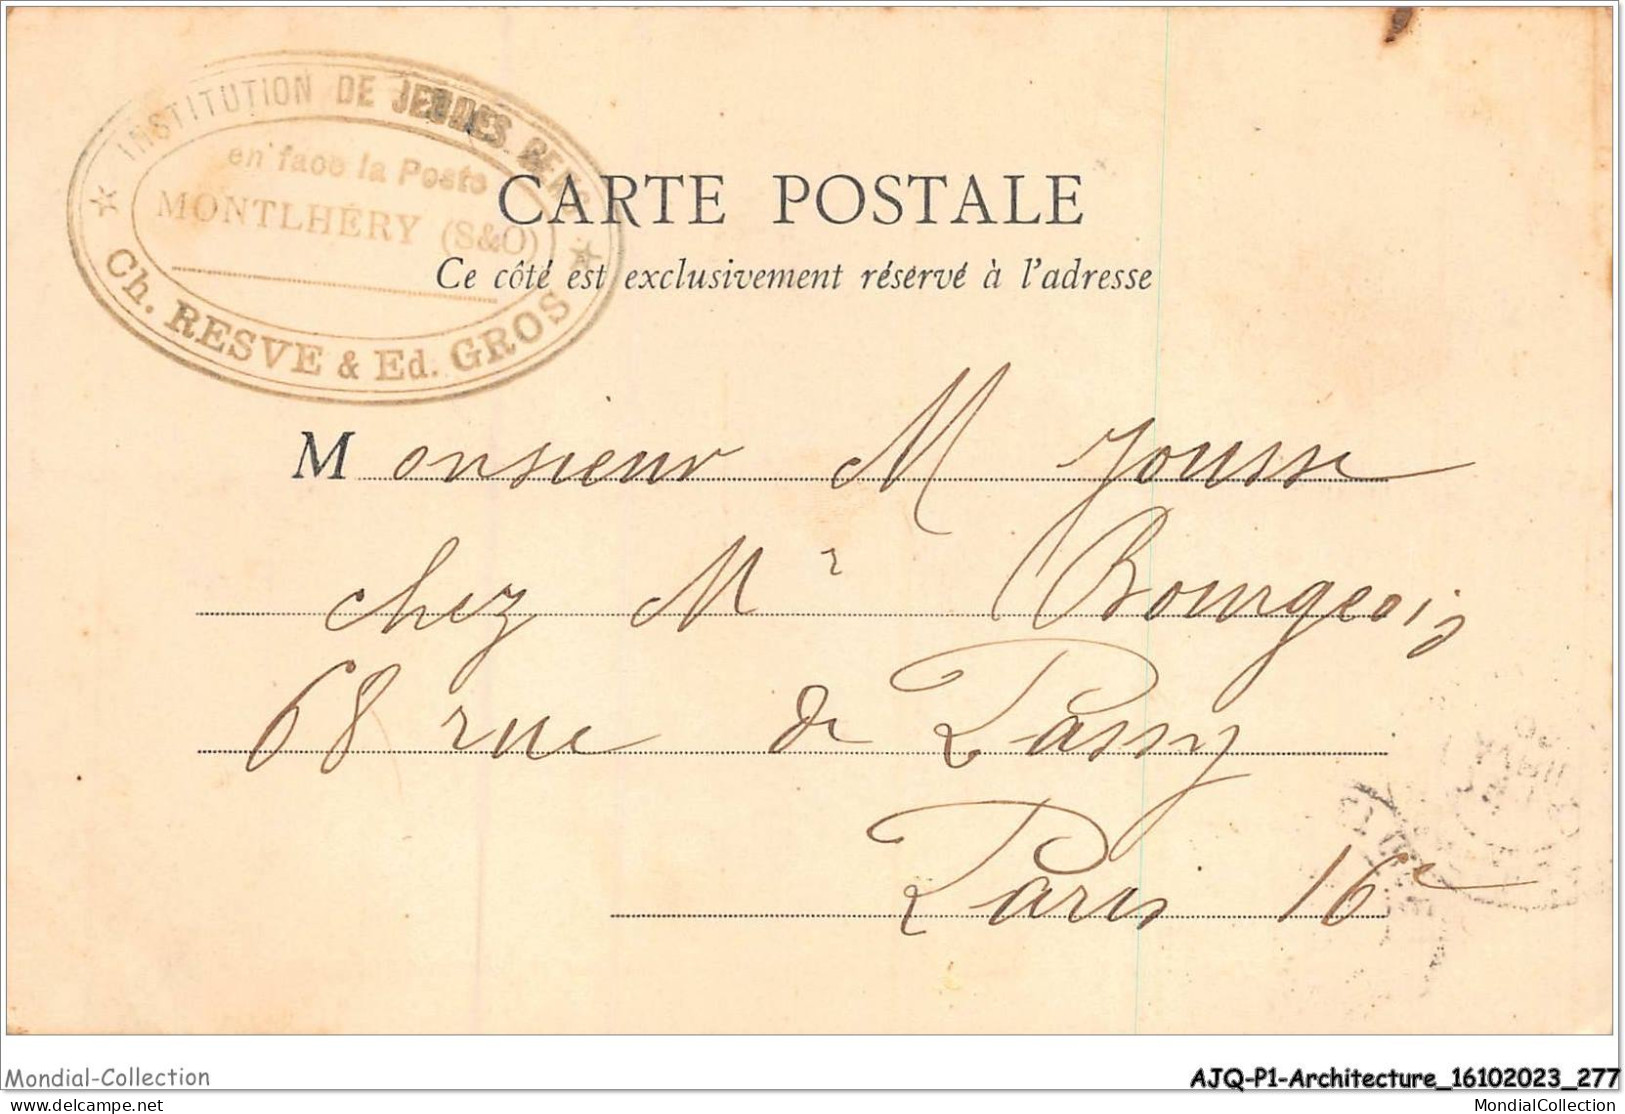 INSTITUTION DE JEUNES GENS
en face la Poste
MONTLHÉRY (S&O)
Ch. RESVE & Ed. GROS
CARTE POSTALE
Ce côté est exclusivement réservé à l'adresse
Monsieur M Jousse
chez Mr Bourgeois
68 rue de Passy
Paris 16e
Mondial-Collection
AJQ-P1-Architecture_16102023_277
delcampe.net
MondialCollection